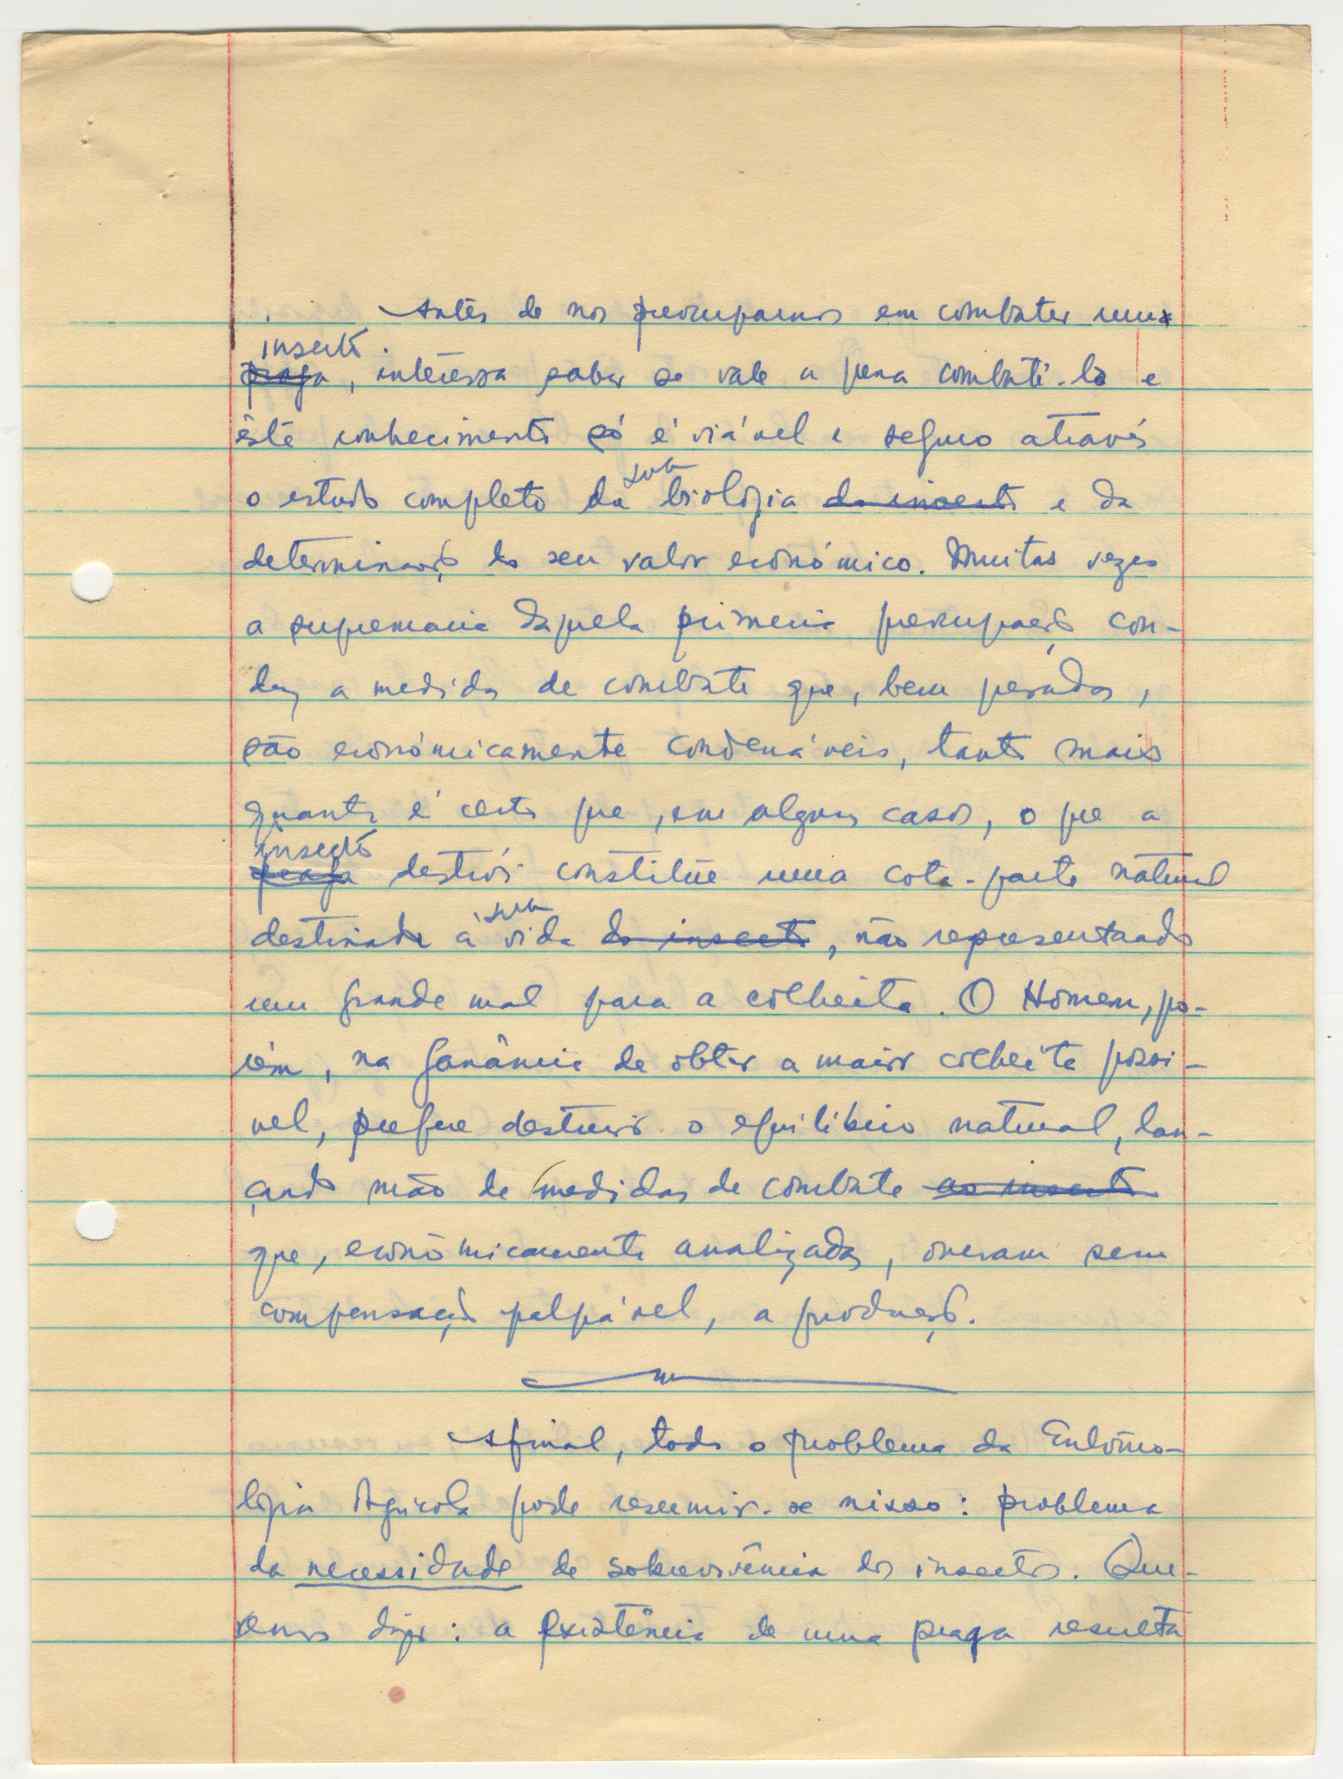 Antes de nos preocuparmos em combater um
insecto
praga, interessa saber se vale a pena combatê-lo e
êste conhecimento só é viável e seguro através
sua
o estudo completo da biologia do insecto e da
determinação do seu valor económico. Muitas vezes
a supremacia daquela primeira preocupação con-
duz a medidas de combate que, bem pesadas,
são econòmicamente condenáveis, tanto mais
quanto é certo que, em alguns casos, o que a
insecto
praga destrói constitue uma cota-parte natural
sua
destinada à vida do insecto, não representando
um grande mal para a colheita. O Homem, po-
rém, na ganância de obter a maior colheita possí-
vel, prefere destruir o equilíbrio natural, lan-
çando mão de medidas de combate ao insecto
que, econòmicamente analizadas, oneram sem
compensação palpável, a produção.
Afinal, todo o problema da Entomo-
logia Agrícola pode resumir-se nisso: problema
da necessidade de sobrevivência dos insectos. Que-
remos dizer: a existência de uma praga resulta